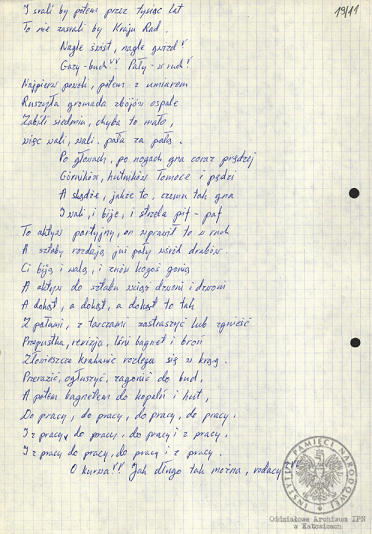 19/11
I srali by potem przez tysiąc lat
To nie zasrali by Kraju Rad.
Nagle szust, nagle gwizd!
Gazy-buch!! Pały-w ruch!
Najpierw powoli, potem z umiarem
Ruszyła gromada zbójów ospale
Zabili siedmiu, chyba to mało,
więc wali, wali, pała za pałą.
Po głowach, po nogach gna coraz prędzej
Górników, hutników łomoce i pędzi
A skądże, jakże to, czemu tak gna
I wali, i bije, i strzela pif-paf
To aktyw partyjny, on wprawił to w ruch
A sztaby rozdają już pały wśród drabów.
Ci biją i walą, i znów kogoś gonią
A aktyw do sztabu wciąż dzwoni i dzwoni
A dokąd, a dokąd, a dokąd to tak
Z pałami, z tarczami zastraszyć lub zgnieść
Przepustka, rewizja, lśni bagnet i broń
Złowieszcze krakanie rozlega się w krąg.
Przerazić, ogłuszyć, zagonić do bud,
A potem bagnetem do kopalń i hut,
Do pracy, do pracy, do pracy, do pracy.
I z pracy, do pracy, do pracy i z pracy.
I z pracy do pracy, do pracy i z pracy.
O kurwa!! Jak długo tak można, rodacy?
INSTYTUT PAMIĘCI NARODOWEJ
Oddziałowe Archiwum IPN
w Katowicach